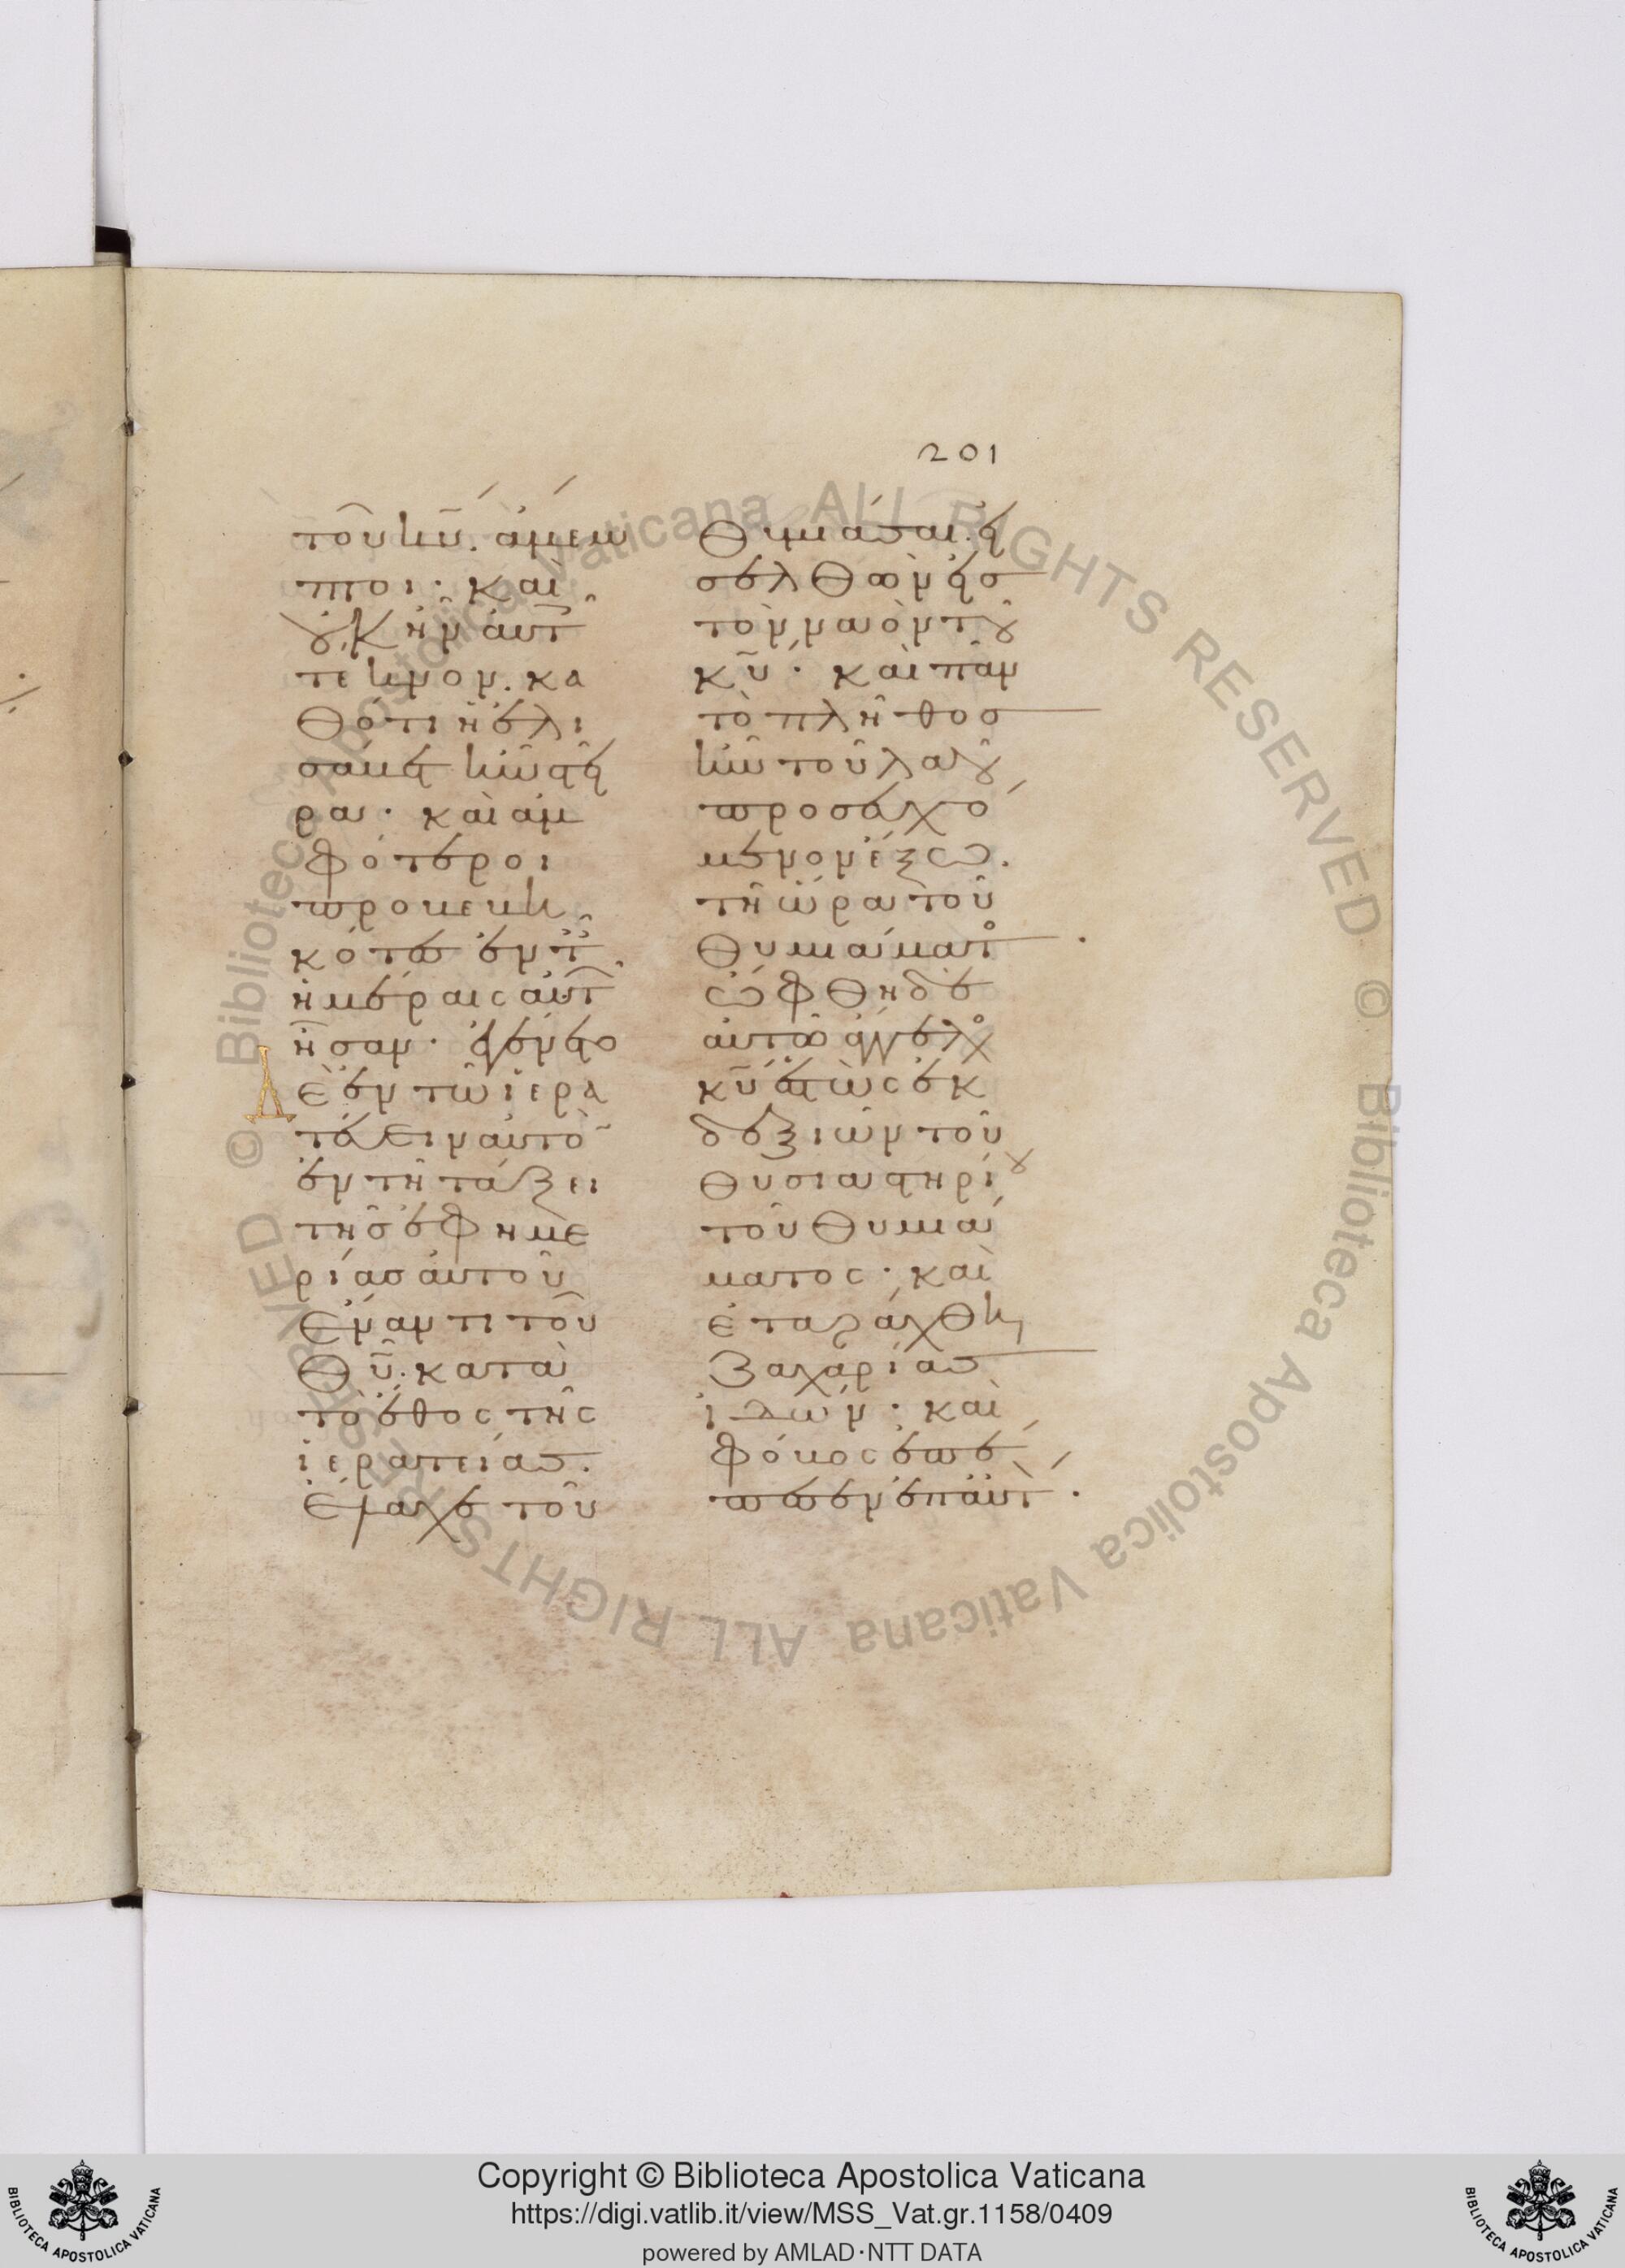 201
τοῦ κῡ. ἄμεμ
πτοι· καὶ
οὐκ ἦν αὐτοῖς
τέκνον. κα
θότι ἡ ἐλι
σάβετ ἦν στεῖ
ρα· καὶ ἀμ
φότεροι
προβεβη
κότες ἐν ταῖς
ἡμέραις αὐτῶν
ἦσαν· ἐγένετο
δὲ ἐν τῷ ἱερα
τεύειν αὐτὸν
ἐν τῇ τάξει
τῆς ἐφημε
ρίας αὐτοῦ
ἔναντι τοῦ
θῡ. κατὰ
τὸ ἔθος τῆς
ἱερατείας.
ἔλαχε τοῦ
θυμιάσαι. εἰ
σελθὼν εἰς
τὸν ναὸν τοῦ
κῡ· καὶ πᾶν
τὸ πλῆθος
ἦν τοῦ λαοῦ
προσευχό
μενον ἔξω.
τῇ ὥρᾳ τοῦ
θυμιάματος.
ὤφθη δὲ
αὐτῷ ἄγγελος
κῡ ἑστὼς ἐκ
δεξιῶν τοῦ
θυσιαστηρίου
τοῦ θυμιά
ματος· καὶ
ἐταράχθη
ζαχαρίας
ἰδών· καὶ
φόβος ἐπέ
πεσεν ἐπ' αὐτόν.
Copyright © Biblioteca Apostolica Vaticana
https://digi.vatlib.it/view/MSS_Vat.gr.1158/0409
powered by AMLAD·NTT DATA
BIBLIOTECA APOSTOLICA VATICANA
BIBLIOTECA APOSTOLICA VATICANA
© Biblioteca Apostolica Vaticana ALL RIGHTS RESERVED
© Biblioteca Apostolica Vaticana ALL RIGHTS RESERVED